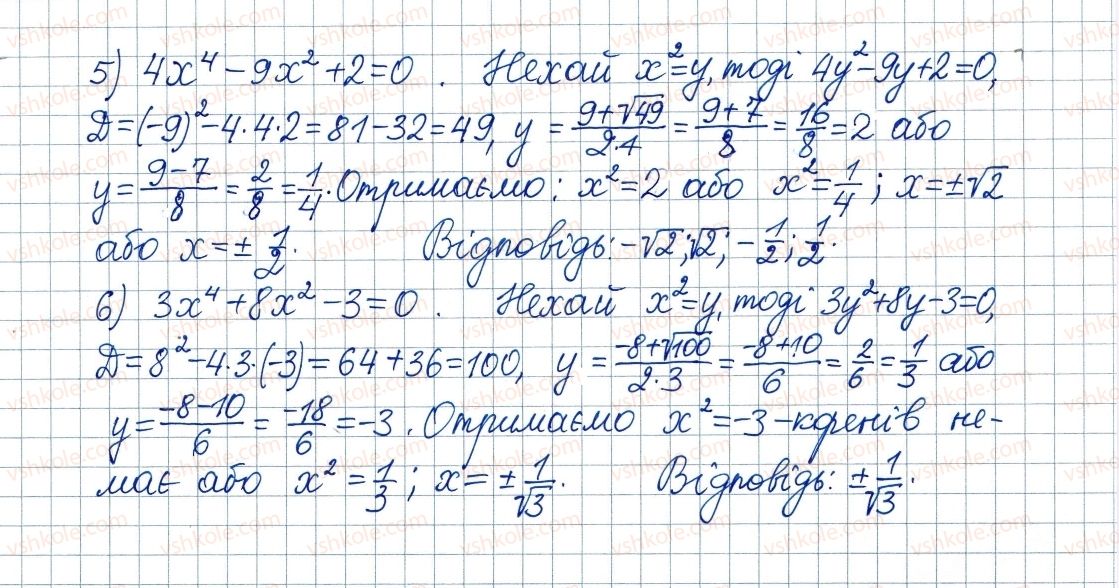 5) 4x⁴ − 9x² + 2 = 0 . Нехай x² = y, тоді 4y² − 9y + 2 = 0,
Д = (−9)² − 4·4·2 = 81 − 32 = 49, y = (9+√49)/(2·4) = (9+7)/8 = 16/8 = 2 або
y = (9−7)/8 = 2/8 = 1/4. Отримаємо: x² = 2 або x² = 1/4; x = ±√2
або x = ± 1/2. Відповідь: −√2; √2; −1/2; 1/2.
6) 3x⁴ + 8x² − 3 = 0 . Нехай x² = y, тоді 3y² + 8y − 3 = 0,
Д = 8² − 4·3·(−3) = 64 + 36 = 100, y = (−8+√100)/(2·3) = (−8+10)/6 = 2/6 = 1/3 або
y = (−8−10)/6 = −18/6 = −3. Отримаємо x² = −3 − коренів не-
має або x² = 1/3; x = ± 1/√3. Відповідь: ± 1/√3.